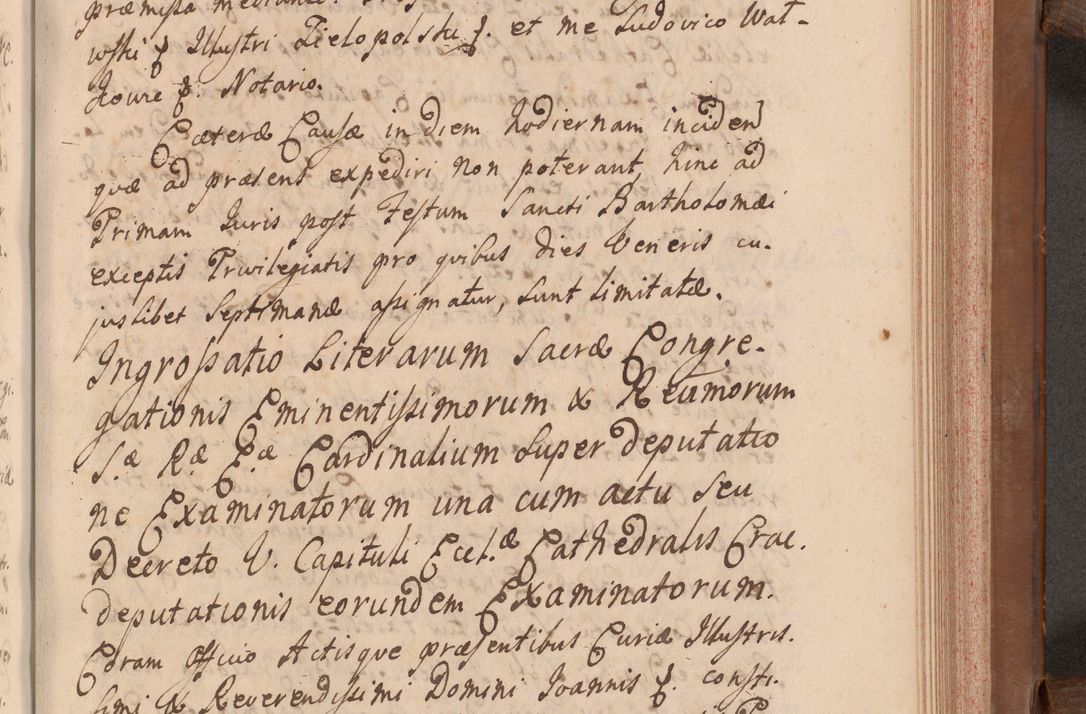 wski f Illustri Zielopolski f. et me Ludovico Wal-
koure f. Notario.
Cæteræ Causæ in diem hodiernam inciden
quæ ad præsens expediri non poterant, hinc ad
Primam Iuris post Festum Sancti Bartholomæi
exceptis Privilegiatis pro quibus dies Veneris cu-
juslibet Septimanæ assignatur, sunt limitatæ.
Ingrossatio Literarum Sacræ Congre-
gationis Eminentissimorum & Reumorum
S.æ R.æ E.æ Cardinalium super deputatio
ne Examinatorum una cum actu seu
Decreto V. Capituli Eccl.æ Cathedralis Crac.
deputationis eorundem Examinatorum.
Coram Officio Actisque præsentibus Curiæ Illustris-
simi & Reverendissimi Domini Joannis f. consti-